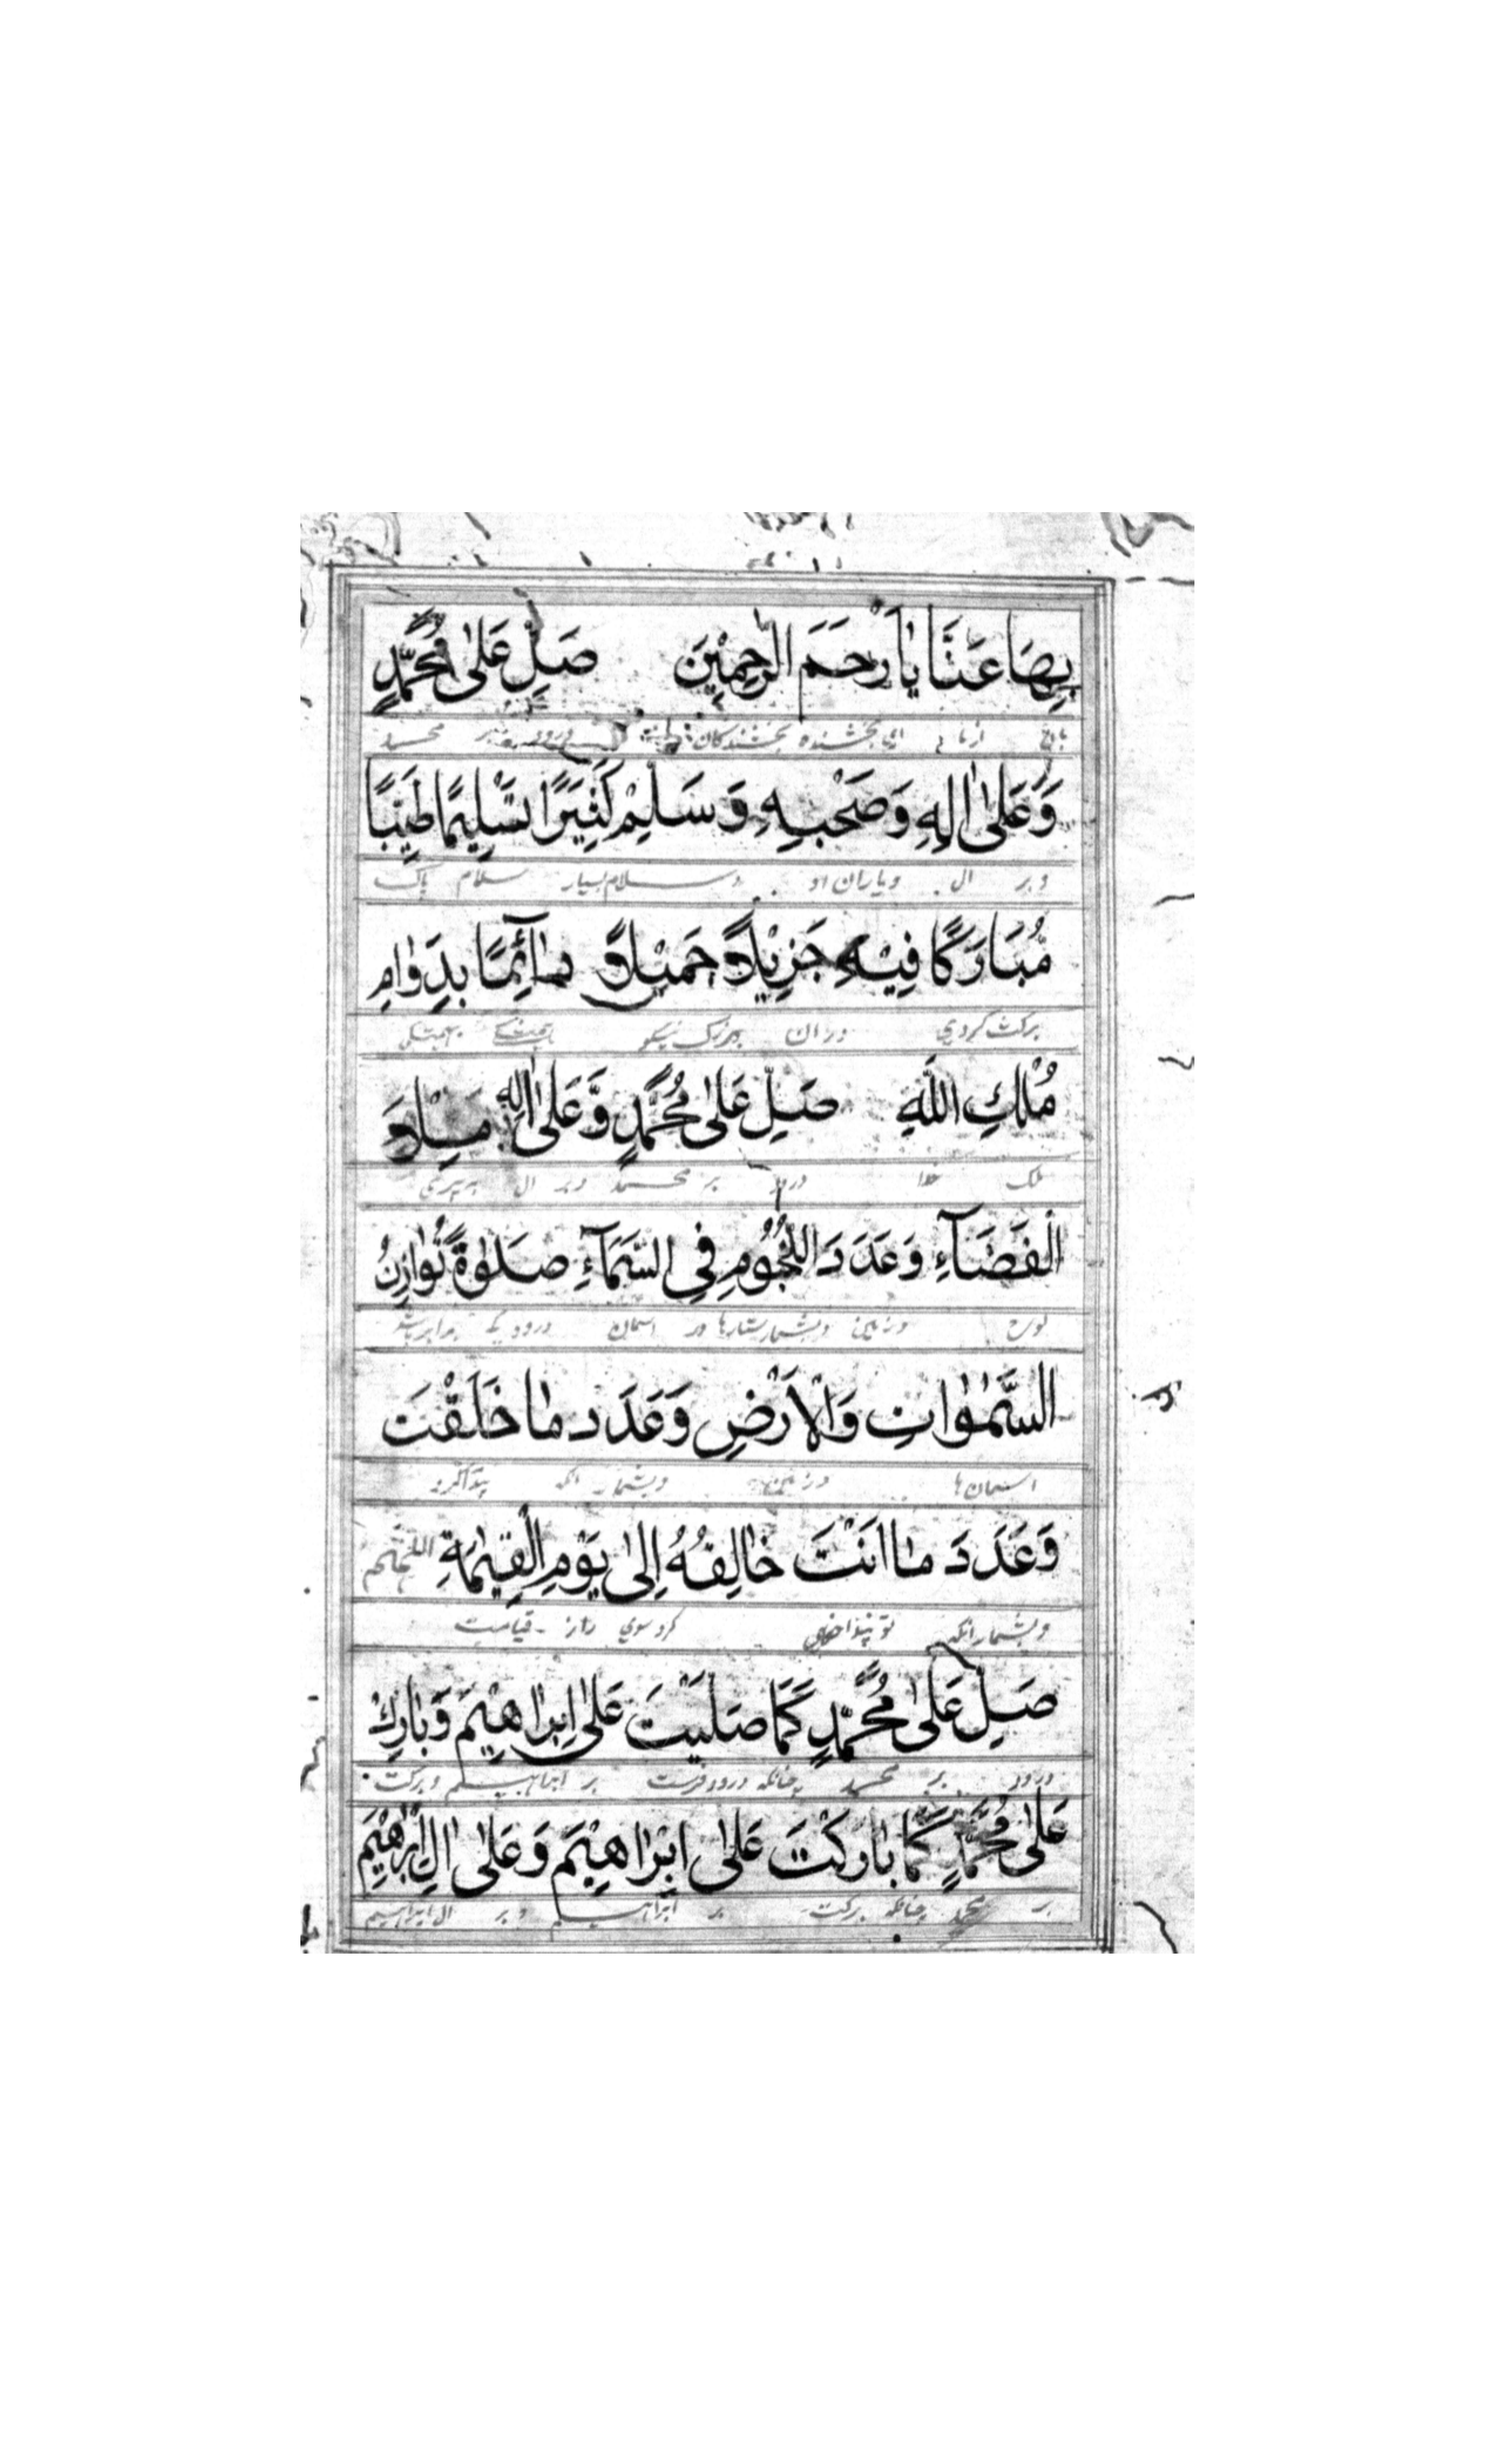 بِهَا عَنَّا يَا أَرْحَمَ الرَّحِمِيْنَ صَلِّ عَلٰى مُحَمَّدٍ
از ما ای بخشنده بخشندگان درود بر محمد
وَعَلٰى اٰلِهٖ وَصَحْبِهٖ وَسَلِّمْ كَثِيْرًا تَسْلِيْمًا طَيِّبًا
و بر ال و یاران او و سلام بسیار سلام پاک
مُّبَارَكًا فِيْهِ جَزِيْلًا جَمِيْلًا دَآئِمًا بِدَوَامِ
برکت کردی در ان بزرگ نیکو
مُلْكِ اللّٰهِ صَلِّ عَلٰى مُحَمَّدٍ وَّعَلٰى اٰلِهٖ مِلَاَ
ملک خدا درود بر محمد و بر ال
الْفَضَآءِ وَعَدَدَ النُّجُوْمِ فِي السَّمَآءِ صَلٰوةً تُوَازِنُ
و بشمار ستارها در اسمان درودیکه برابر باشد
السَّمٰوَاتِ وَالْاَرْضِ وَعَدَدَ مَا خَلَقْتَ
اسمان ها و زمین و بشمار انکه
وَعَدَدَ مَا اَنْتَ خَالِقُهُ اِلٰى يَوْمِ الْقِيٰمَةِ اللّٰهُمَّ
و بشمار انکه تو کرد سوی روز قیامت
صَلِّ عَلٰى مُحَمَّدٍ كَمَا صَلَّيْتَ عَلٰى اِبْرَاهِيْمَ وَبَارِكْ
درود بر محمد چنانکه درود فرست بر ابراهیم و برکت
عَلٰى مُحَمَّدٍ كَمَا بَارَكْتَ عَلٰى اِبْرَاهِيْمَ وَعَلٰى اٰلِ اِبْرَاهِيْمَ
بر محمد چنانکه برکت بر ابراهیم و بر ال ابراهیم